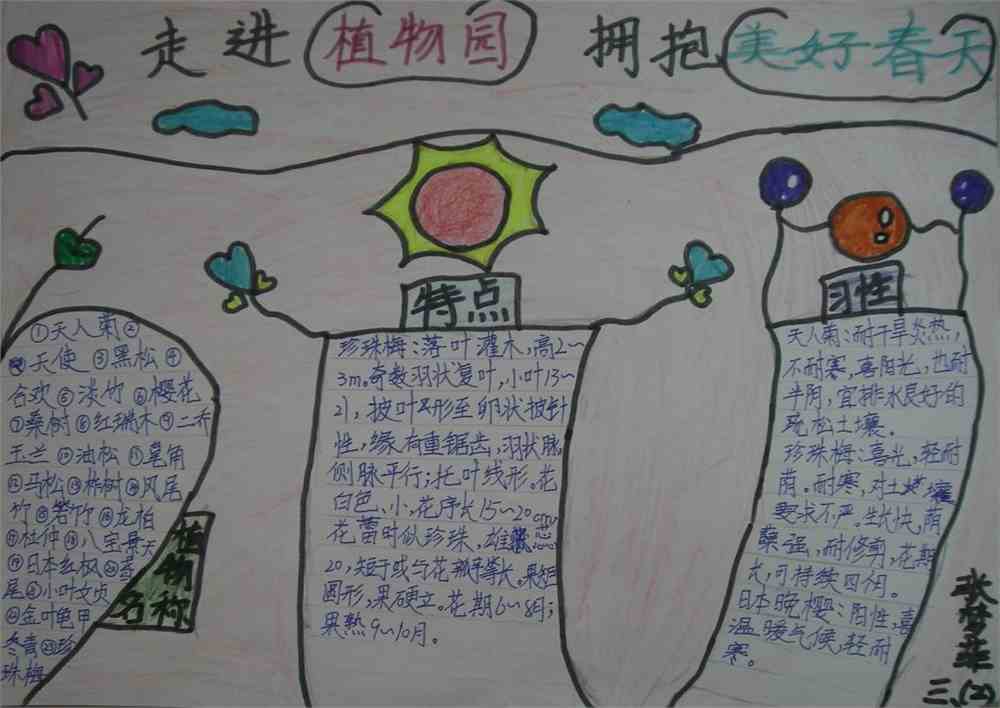 走进 植物园 拥抱 美好春天
①天人菊②
天使 ③黑松④
合欢⑤淡竹⑥樱花
⑦桑树⑧红瑞木⑨二乔
玉兰⑩油松⑪皂角
⑫马松⑬柞树⑭凤尾
竹⑮箬竹⑯龙柏
⑰杜仲⑱八宝景天
⑲日本红枫⑳
尾 小叶女贞
金叶龟甲
冬青 珍
珠梅
植物名称
特点
珍珠梅:落叶灌木,高2~
3m。奇数羽状复叶,小叶13~
21,披叶形至卵状披针
性,缘有重锯齿,羽状脉,
侧脉平行;托叶线形。花
白色、小,花序长15~20cm
花蕾时似珍珠,雄蕊
20,短于或与花瓣等长。果短
圆形,果硬立。花期6~8月;
果熟9~10月。
习性
天人菊:耐干旱炎热,
不耐寒,喜阳光,也耐
半阴,宜排水良好的
疏松土壤。
珍珠梅:喜光,轻耐
荫。耐寒,对土壤
要求不严。生长快,萌
蘖强,耐修剪,花期
长,可持续四个月。
日本晚樱:阳性,喜
温暖气候,轻耐
寒。
张梦菲
三、(2)